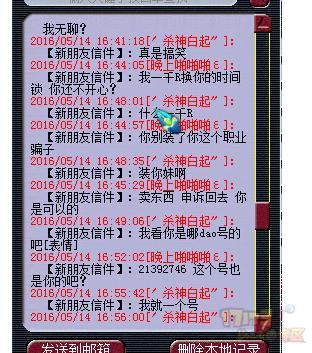 我无聊?
2016/05/14 16:41:18[〞杀神白起〞]:
【新朋友信件】：真是搞笑
2016/05/14 16:44:05[晚上啪啪啪ε]:
【新朋友信件】：我一千R换你的时间
锁 你还不开心?
2016/05/14 16:48:01[〞杀神白起〞]:
【新朋友信件】：什么一千R
2016/05/14 16:44:57[晚上啪啪啪ε]:
【新朋友信件】：你别装了你这个职业
骗子
2016/05/14 16:48:35[〞杀神白起〞]:
【新朋友信件】：装你妹啊
2016/05/14 16:45:29[晚上啪啪啪ε]:
【新朋友信件】：卖东西 申诉回去 你
是可以的
2016/05/14 16:49:06[〞杀神白起〞]:
【新朋友信件】：我看你是哪dao号的
吧[表情]
2016/05/14 16:52:02[晚上啪啪啪ε]:
【新朋友信件】：21392746 这个号也
是你的吧?
2016/05/14 16:55:42[〞杀神白起〞]:
【新朋友信件】：我就一个号
2016/05/14 16:56:00[〞杀神白起〞]:
发送到邮箱
删除本地记录